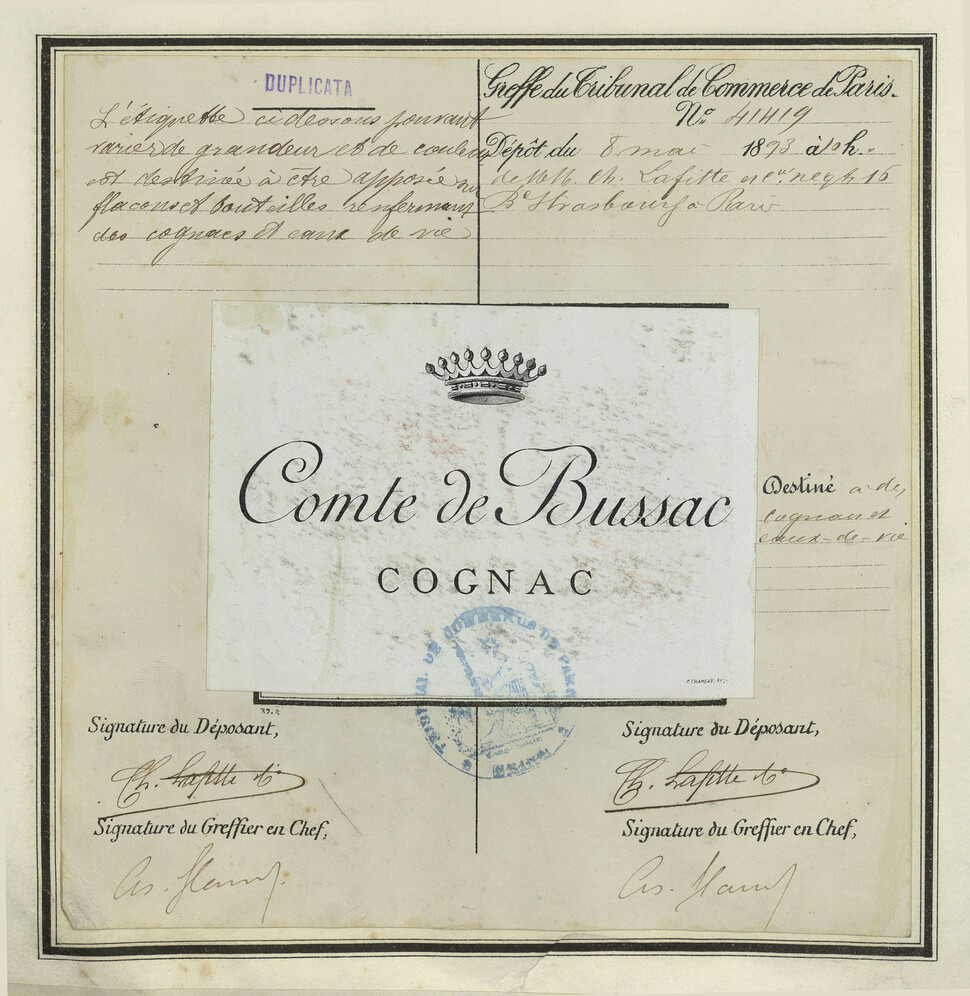 DUPLICATA
L'étiquette ci dessous pouvant
varier de grandeur et de couleur
est destinée à être apposée sur
flacons et bouteilles renfermant
des cognacs et eaux de vie
Greffe du Tribunal de Commerce de Paris.
No. 41419
Dépôt du 8 mai 1893 à 10 h.
de MM. Ch. Lafitte et Cie négts 16
Bd Strasbourg à Paris
Comte de Bussac
COGNAC
Destiné à des
cognacs et
eaux-de-vie
TRIBUNAL DE COMMERCE DE PARIS
SEINE
Signature du Déposant,
Ch. Lafitte & Co
Signature du Greffier en Chef,
Signature du Déposant,
Ch. Lafitte & Co
Signature du Greffier en Chef,